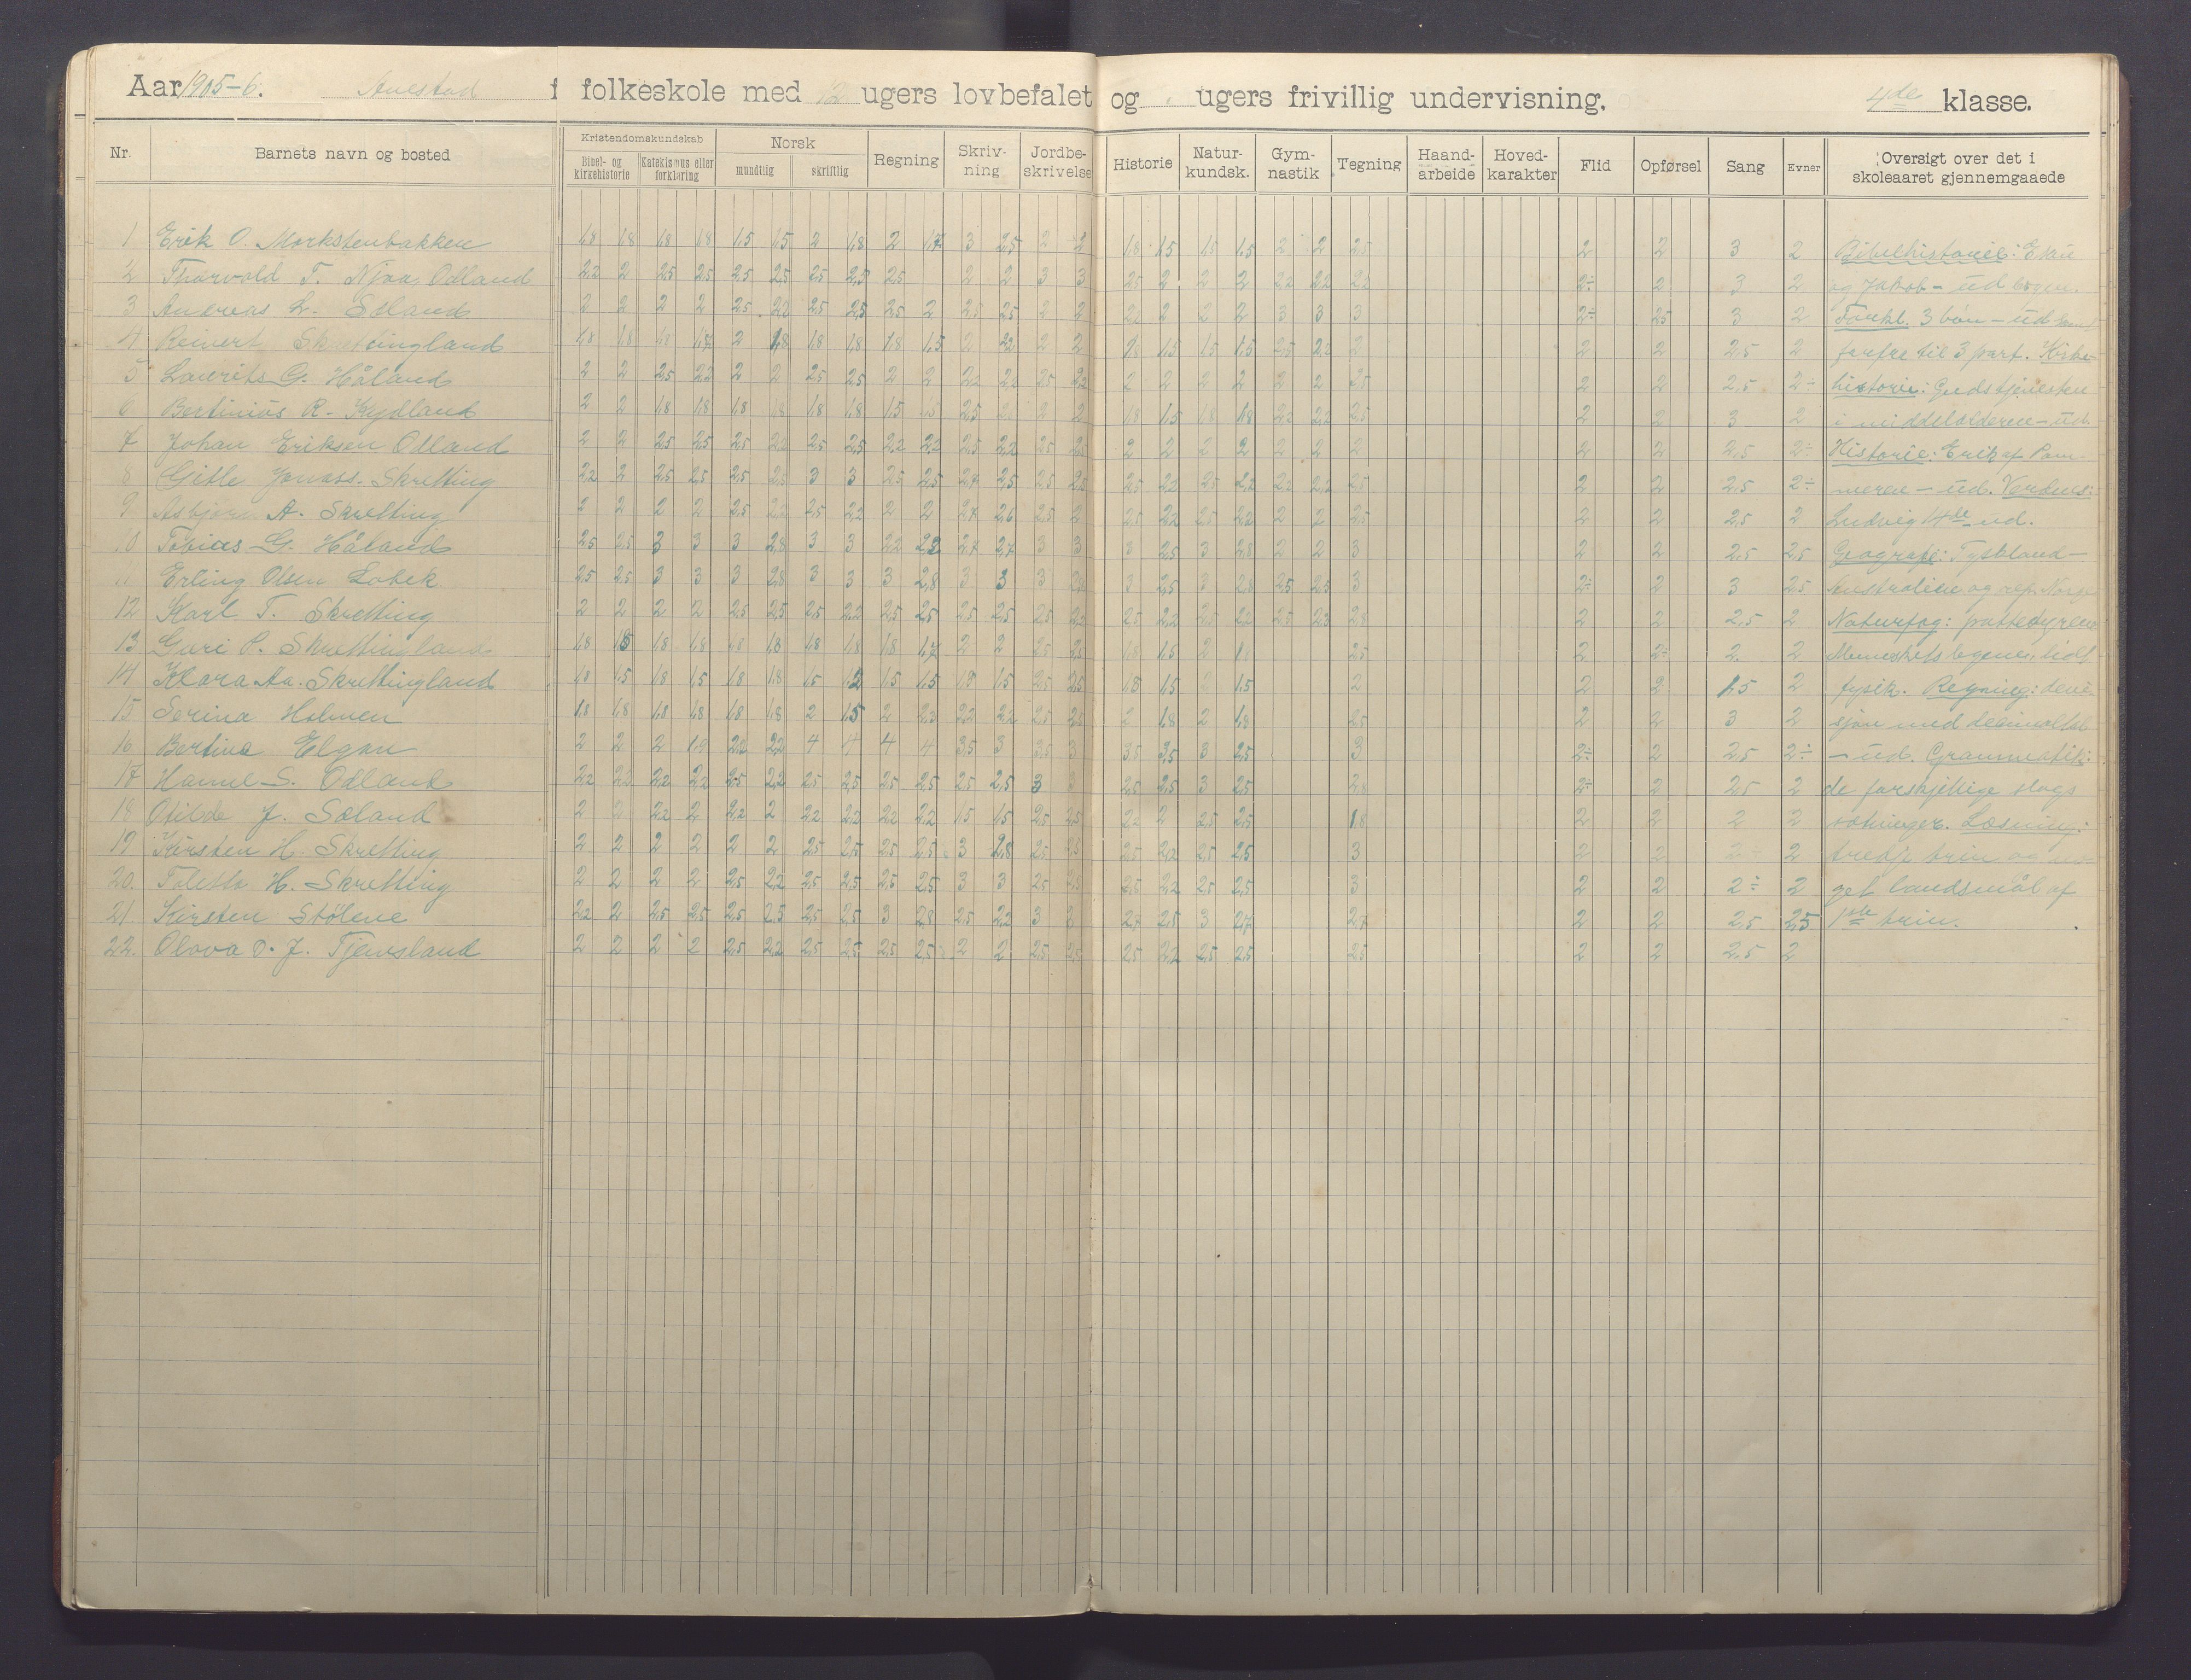 Aar 1905-6. Auestad folkeskole med 12 ugers lovbefalet og ugers frivillig undervisning. 4de klasse.
Nr. Barnets navn og bosted Kristendomskundskab Bibel- og kirkehistorie Katekismus eller forklaring Norsk mundtlig skriftlig Regning Skriv-ning Jordbe-skrivelse Historie Natur-kundsk. Gym-nastik Tegning Haand-arbeide Hoved-karakter Flid Opførsel Sang Evner Oversigt over det i skoleaaret gjennemgaaede
1 Erik O. Morkstenbakken 1,8 1,8 1,8 1,8 1,5 1,5 2 1,8 2 1,7 3 2,5 2 2 1,8 1,5 1,5 1,5 2 2 2,5 2 2 3 2 Bibelhistorie: Esau
2 Thorvold T. Njaa, Odland 2,2 2 2,5 2,5 2,5 2,5 2,5 2,5 2,5 2 2 3 3 2,5 2 2 2 2,2 2,2 2,2 2÷ 2 3 2 og Jakob - ud bogen.
3 Andreas L. Söland 2 2 2 2 2,5 2,5 2,5 2,5 2 2,5 2,5 2 2 2 2 2 3 3 3 2÷ 2,5 3 2 Forkl. 3 bön - ud
4 Reinert Skretingland 1,8 1,8 1,8 1,7 2 1,8 1,8 1,8 1,8 1,5 2 2,2 2 2 1,8 1,5 1,5 1,5 2,5 2,2 2 2 2 2,5 2 til 3 part. Kirke-
5 Laurits G. Håland 2 2 2,5 2,2 2 2 2,5 2,5 2 2 2,2 2,2 2,5 2,2 2 2 2 2 2 2 2,5 2 2 2,5 2÷ historie: Gudstjenesten
6 Bertinius R. Kydland 2 2 1,8 1,8 1,8 1,8 1,8 1,8 1,5 2,5 2 2 1,8 1,5 1,8 1,8 2,2 2,2 2,5 2 2 3 2 i middelalderen - ud.
7 Johan Eriksen Odland 2 2 2,5 2,5 2,5 2,2 2,5 2,5 2,2 2,2 2,5 2,2 2,5 2,5 2 2 2 2 2 2 2 2 2 2,5 2÷ Historie: Erik af Pom-
8 Gitle Jonass. Skretting 2,2 2 2,5 2,5 2,5 2,5 3 3 2,5 2,5 2,7 2,5 2,5 2,5 2,5 2,2 2,5 2,2 2,2 2,2 2,5 2 2 2,5 2÷ meren - ud. Verdens:
9 Asbjörn A. Skretting 2 2 2 2 2,5 2,2 2,5 2,2 2 2 2,7 2,6 2,5 2 2,5 2,2 2,5 2,2 2 2 2,5 2 2 2,5 2 Ludvig 14de ud.
10 Tobias G. Håland 2,5 2,5 3 3 3 2,8 3 3 2,2 2,3 2,7 2,7 3 3 3 2,5 3 2,8 2 2 3 2 2 2,5 2,5 Geografi: Tyskland -
11 Erling Olsen Lobek 2,5 2,5 3 3 3 2,8 3 3 3 2,8 3 3 3 2,8 3 2,5 3 2,8 2,5 2,5 3 2÷ 2 3 2,5 Australien og rep. Norge
12 Karl T. Skretting 2 2 2 2 2,5 2,5 2,5 2,2 2,5 2,5 2,5 2,5 2,5 2,2 2,5 2,2 2,5 2,2 2,5 2,3 2,8 2 2 2,5 2 Naturfag: pattedyrene
13 Guri P. Skrettingland 1,8 1,5 1,8 1,8 1,8 1,8 1,8 1,8 1,8 1,7 2 2 2,5 2,5 1,8 1,5 2 2,5 2 2÷ 2 2 Menneskets legeme, lidt
14 Klara Aa. Skrettingland 1,8 1,5 1,8 1,5 1,8 1,8 1,5 1,2 1,5 1,5 1,8 1,5 2,5 2,5 1,8 1,5 2 1,5 2 2 2 1,5 2 fysik. Regning: divi-
15 Serina Holmen 1,8 1,8 1,8 1,8 1,8 1,8 2 1,5 2 2,2 2,2 2,2 2,5 2,5 2 1,8 2 1,8 2,5 2 2 3 2 sjon med decimaltal
16 Bertina Elgan 2 2 2 1,9 2,2 2,2 4 4 4 4 3,5 3 3,5 3 3,5 3,5 3 2,5 3 2÷ 2 2,5 2÷ - ud. Grammatik:
17 Hanne S. Odland 2,2 2,2 2,2 2,2 2,5 2,2 2,5 2,5 2,5 2,5 2,5 2,5 3 3 2,5 2,5 3 2,5 2,8 2÷ 2 2,5 2 de forskjellige slags
18 Otilde J. Söland 2 2 2,2 2 2,2 2 2,2 2,2 2,2 2,2 1,5 1,5 2,5 2,5 2,2 2 2,5 2,5 1,8 2 2 2 2 sætninger. Læsning:
19 Kirsten H. Skretting 2 2 2 2 2 2 2,5 2,5 2,5 2,5 3 2,8 2,5 2,5 2,5 2,2 2,5 2,5 3 2 2 2÷ 2 tredje trin og no-
20. Tolette H. Skretting 2 2 2 2 2,5 2,2 2,5 2,5 2,5 2,5 3 3 2,5 2,5 2,5 2,2 2,5 2,5 3 2 2 2÷ 2 get landsmål af
21 Kirsten Stölene 2,2 2 2,5 2,5 2,5 2,5 2,5 2,5 3 2,8 2,5 2,2 3 3 2,7 2,5 3 2,7 2,7 2 2 2,5 2,5 1ste trin.
22. Olova O. J. Tjensland 2 2 2 2 2,5 2,2 2,5 2,5 2,5 2,5 2 2 2,5 2,5 2,5 2,2 2,5 2,5 2,5 2 2 2,5 2